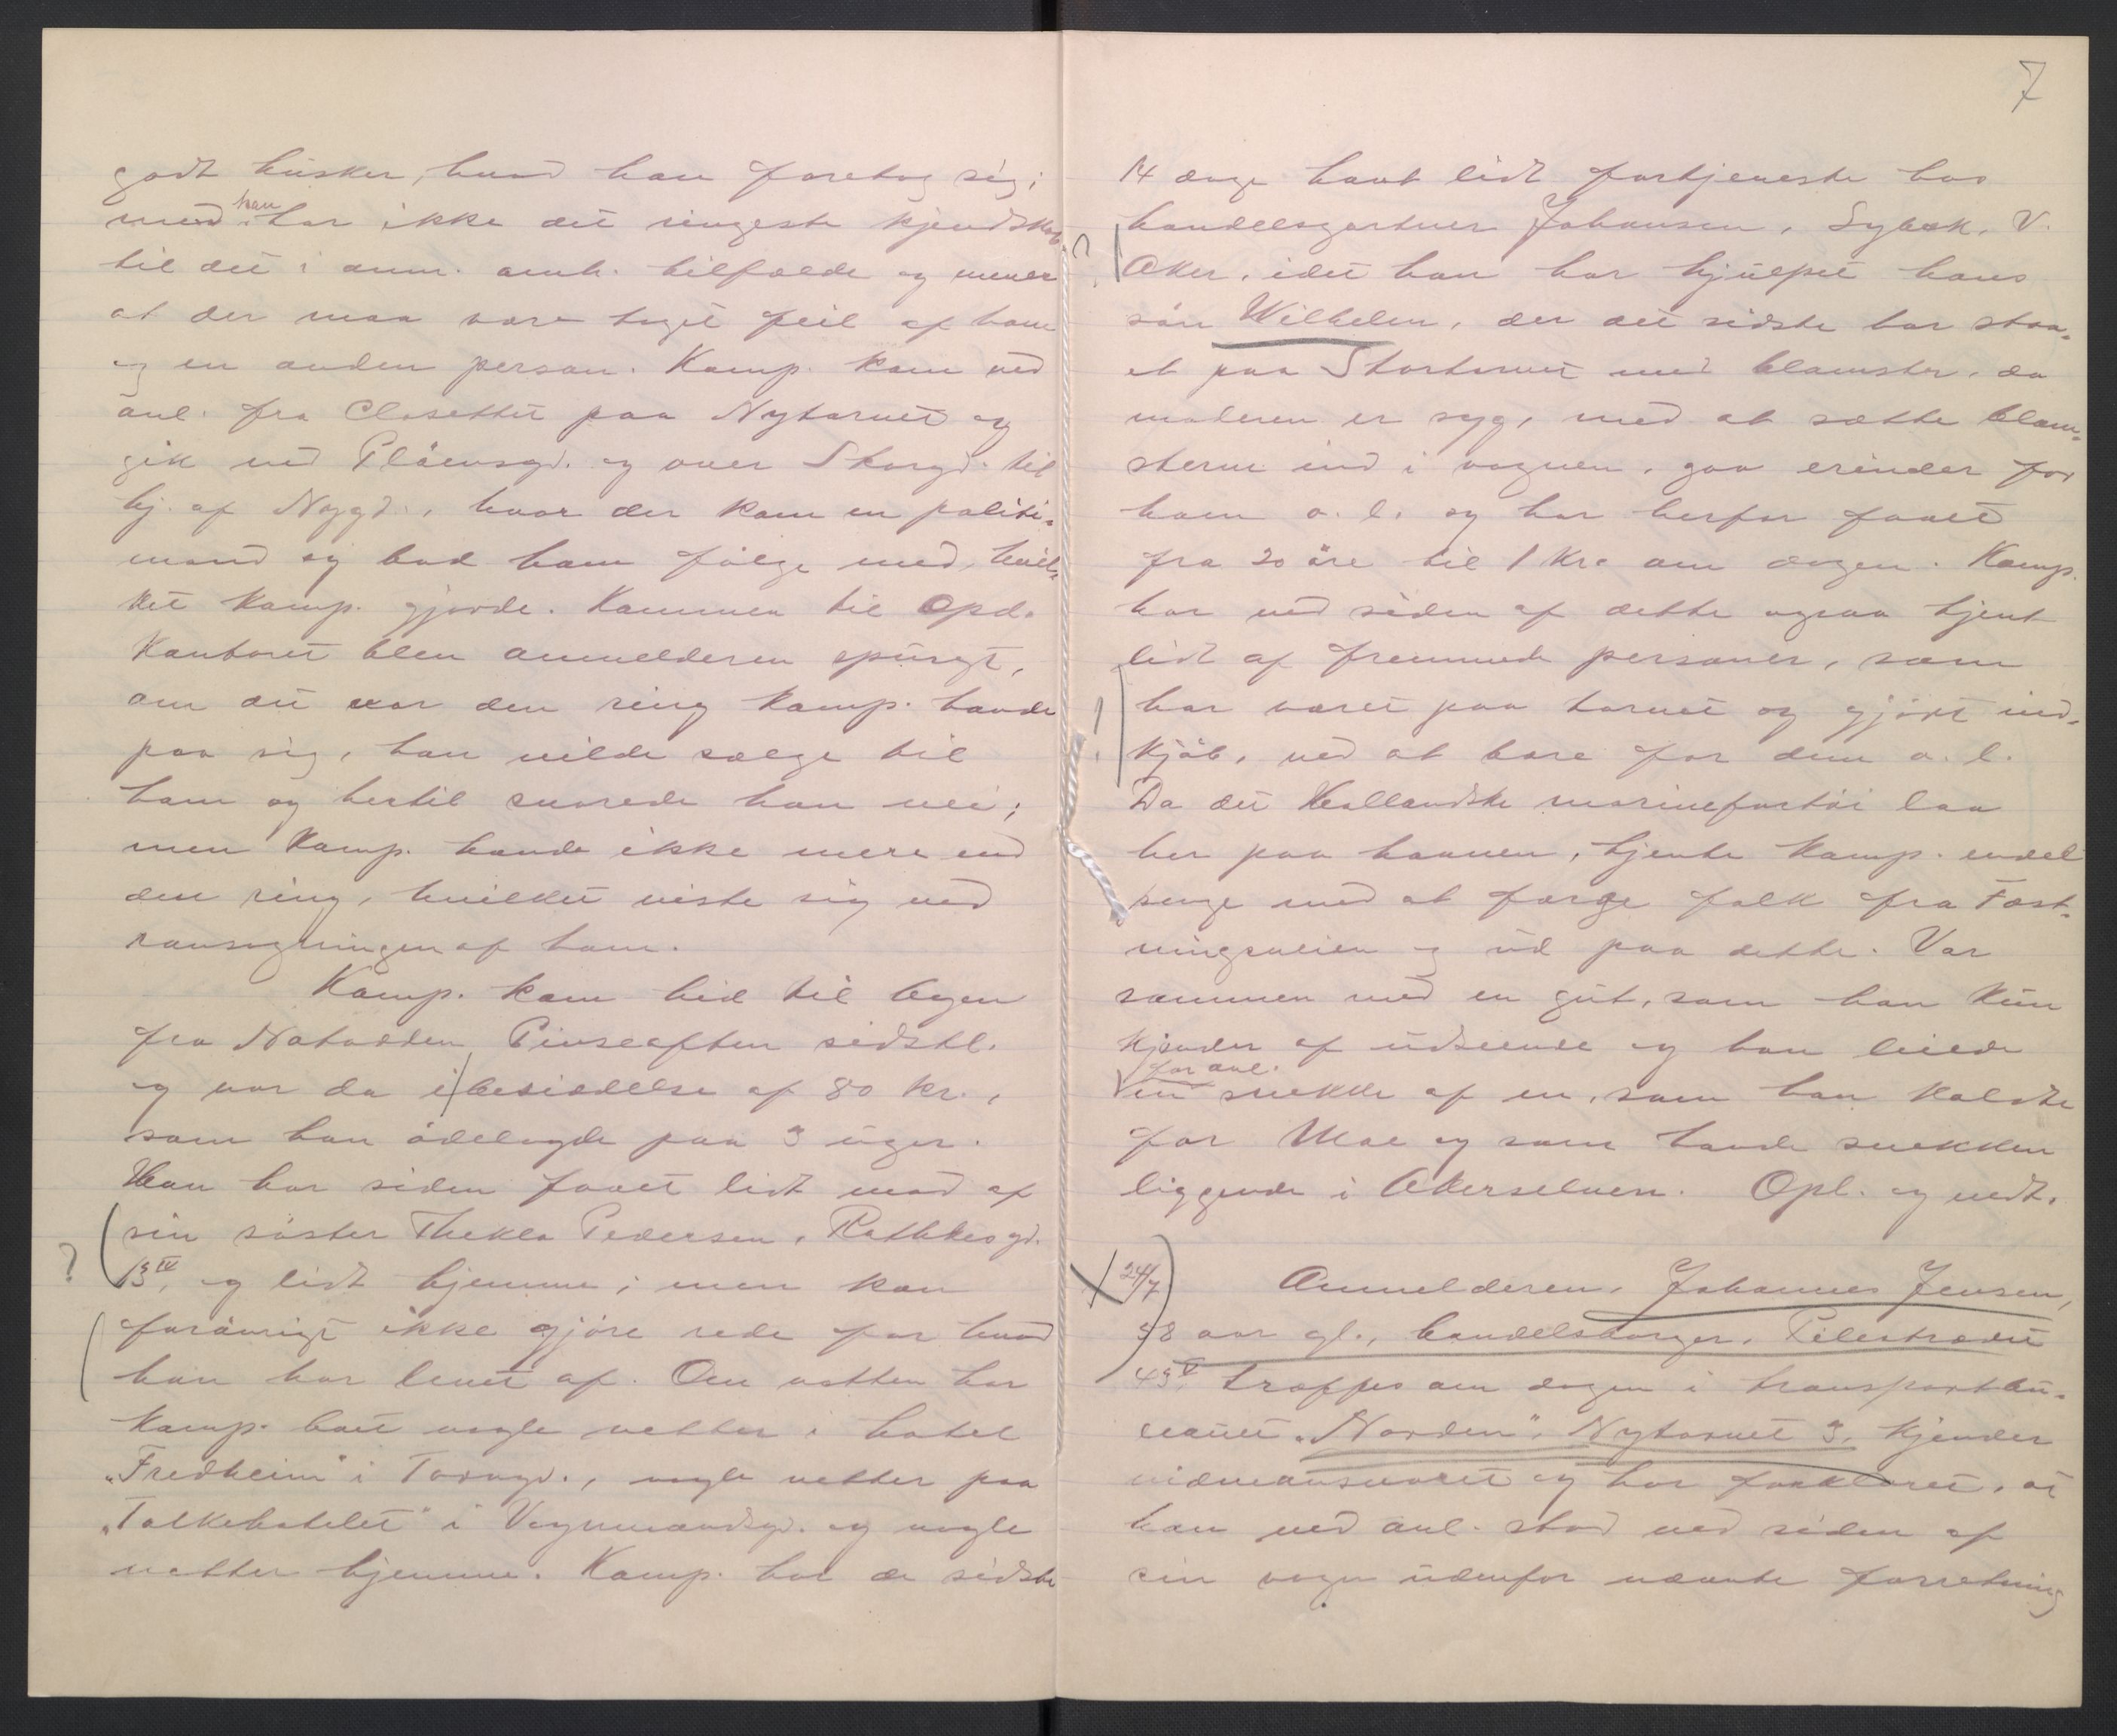 godt husker, hvad han foretog sig;
men han har ikke det ringeste kjendskab
til det i anm. omh. tilfælde og mener
at der maa være taget feil af ham
og en anden person. Komp. kom ved
anl. fra Closettet paa Nytorvet og
gik ned Pløensgd. og over Storgd. til
hj. af Nygd., hvor der kom en politi-
mand og bad ham følge med, hvil-
ket komp. gjorde. Kommen til Opd.
Kontoret blev anmelderen spurgt,
om det var den ring komp. havde
paa sig, han vilde sælge til
ham og hertil svarede han nei;
men komp. havde ikke mere end
den ring, hvilket viste sig ved
ransagningen af ham.
Komp. kom hid til byen
fra Notodden Pinseaften sidstl.
og var da i besiddelse af 80 kr.,
som han ödelagde paa 3 uger.
Han har siden faaet lidt mad af
? sin søster Thekla Pedersen, Rathkesgd.
13 IV, og lidt hjemme; men kan
forøvrigt ikke gjøre rede for hvad
han har levet af. Om natten har
komp. boet nogle netter i hotel
"Fredheim" i Torvgd., nogle netter paa
"Folkehotelet" i Vognmandsgd. og nogle
netter hjemme. Komp. har de sidste
7
14 dage havt lidt fortjeneste hos
handelsgartner Johansen, Sybæk, V.
? Aker, idet han har hjulpet hans
søn Wilhelm, der det sidste har staa-
et paa Stortorvet med blomster, da
moderen er syg, med at sætte blom-
sterne ind i vognen, gaa erinder for
ham o. l. og har herfor faaet
fra 20 øre til 1 kr. om dagen. Komp.
har ved siden af dette ogsaa tjent
lidt af fremmede personer, som
? har været paa torvet og gjort ind-
kjøb, ved at bære for dem o. l.
Da det Hollandske marinefartøi laa
her paa havnen, tjente komp. endel
penge med at færge folk fra Fæst-
ningsveien og ud paa dette. Var
sammen med en gut, som han kun
kjender af udseende og han leiede
for anl.
en snekke af en, som han kaldte
for Moe og som havde snekken
liggende i Akerselven. Opl. og vedt.
24/7 Anmelderen, Johannes Jensen,
38 aar gl., handelsborger, Pilestrædet
43 V, træffes om dagen i transportbu-
reauet "Norden", Nytorvet 3, kjender
vidneansvaret og har forklaret, at
han ved anl. stod ved siden af
sin vogn udenfor nævnte forretning